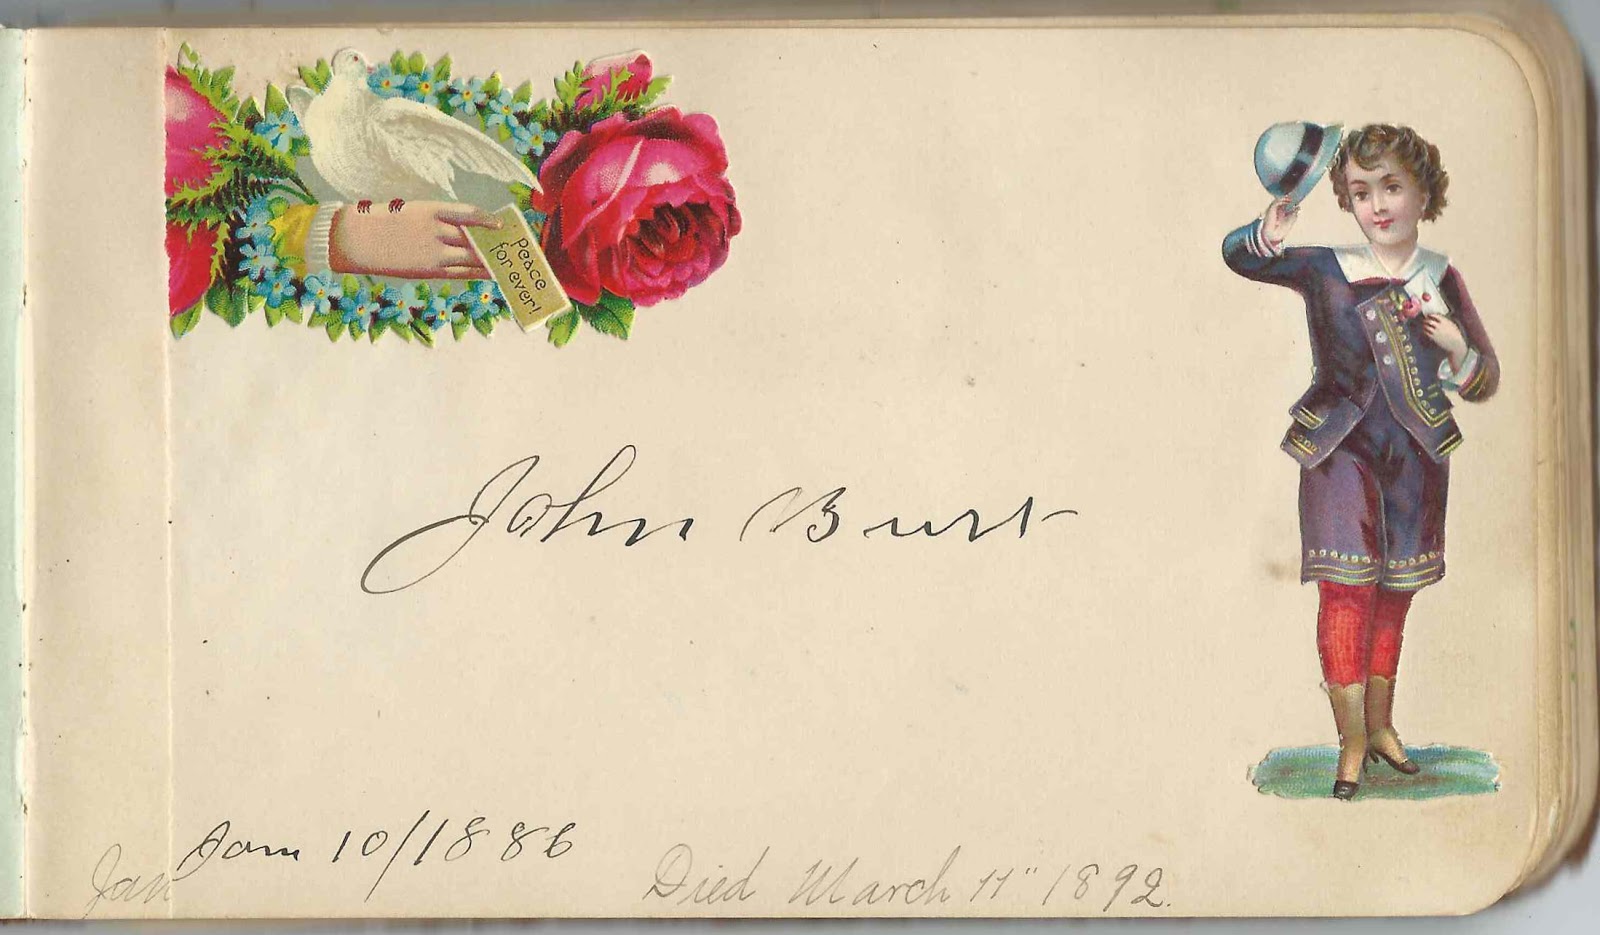 Peace
for ever!
John Burt
Jan 10/1886
Jan
Died March 11" 1892.